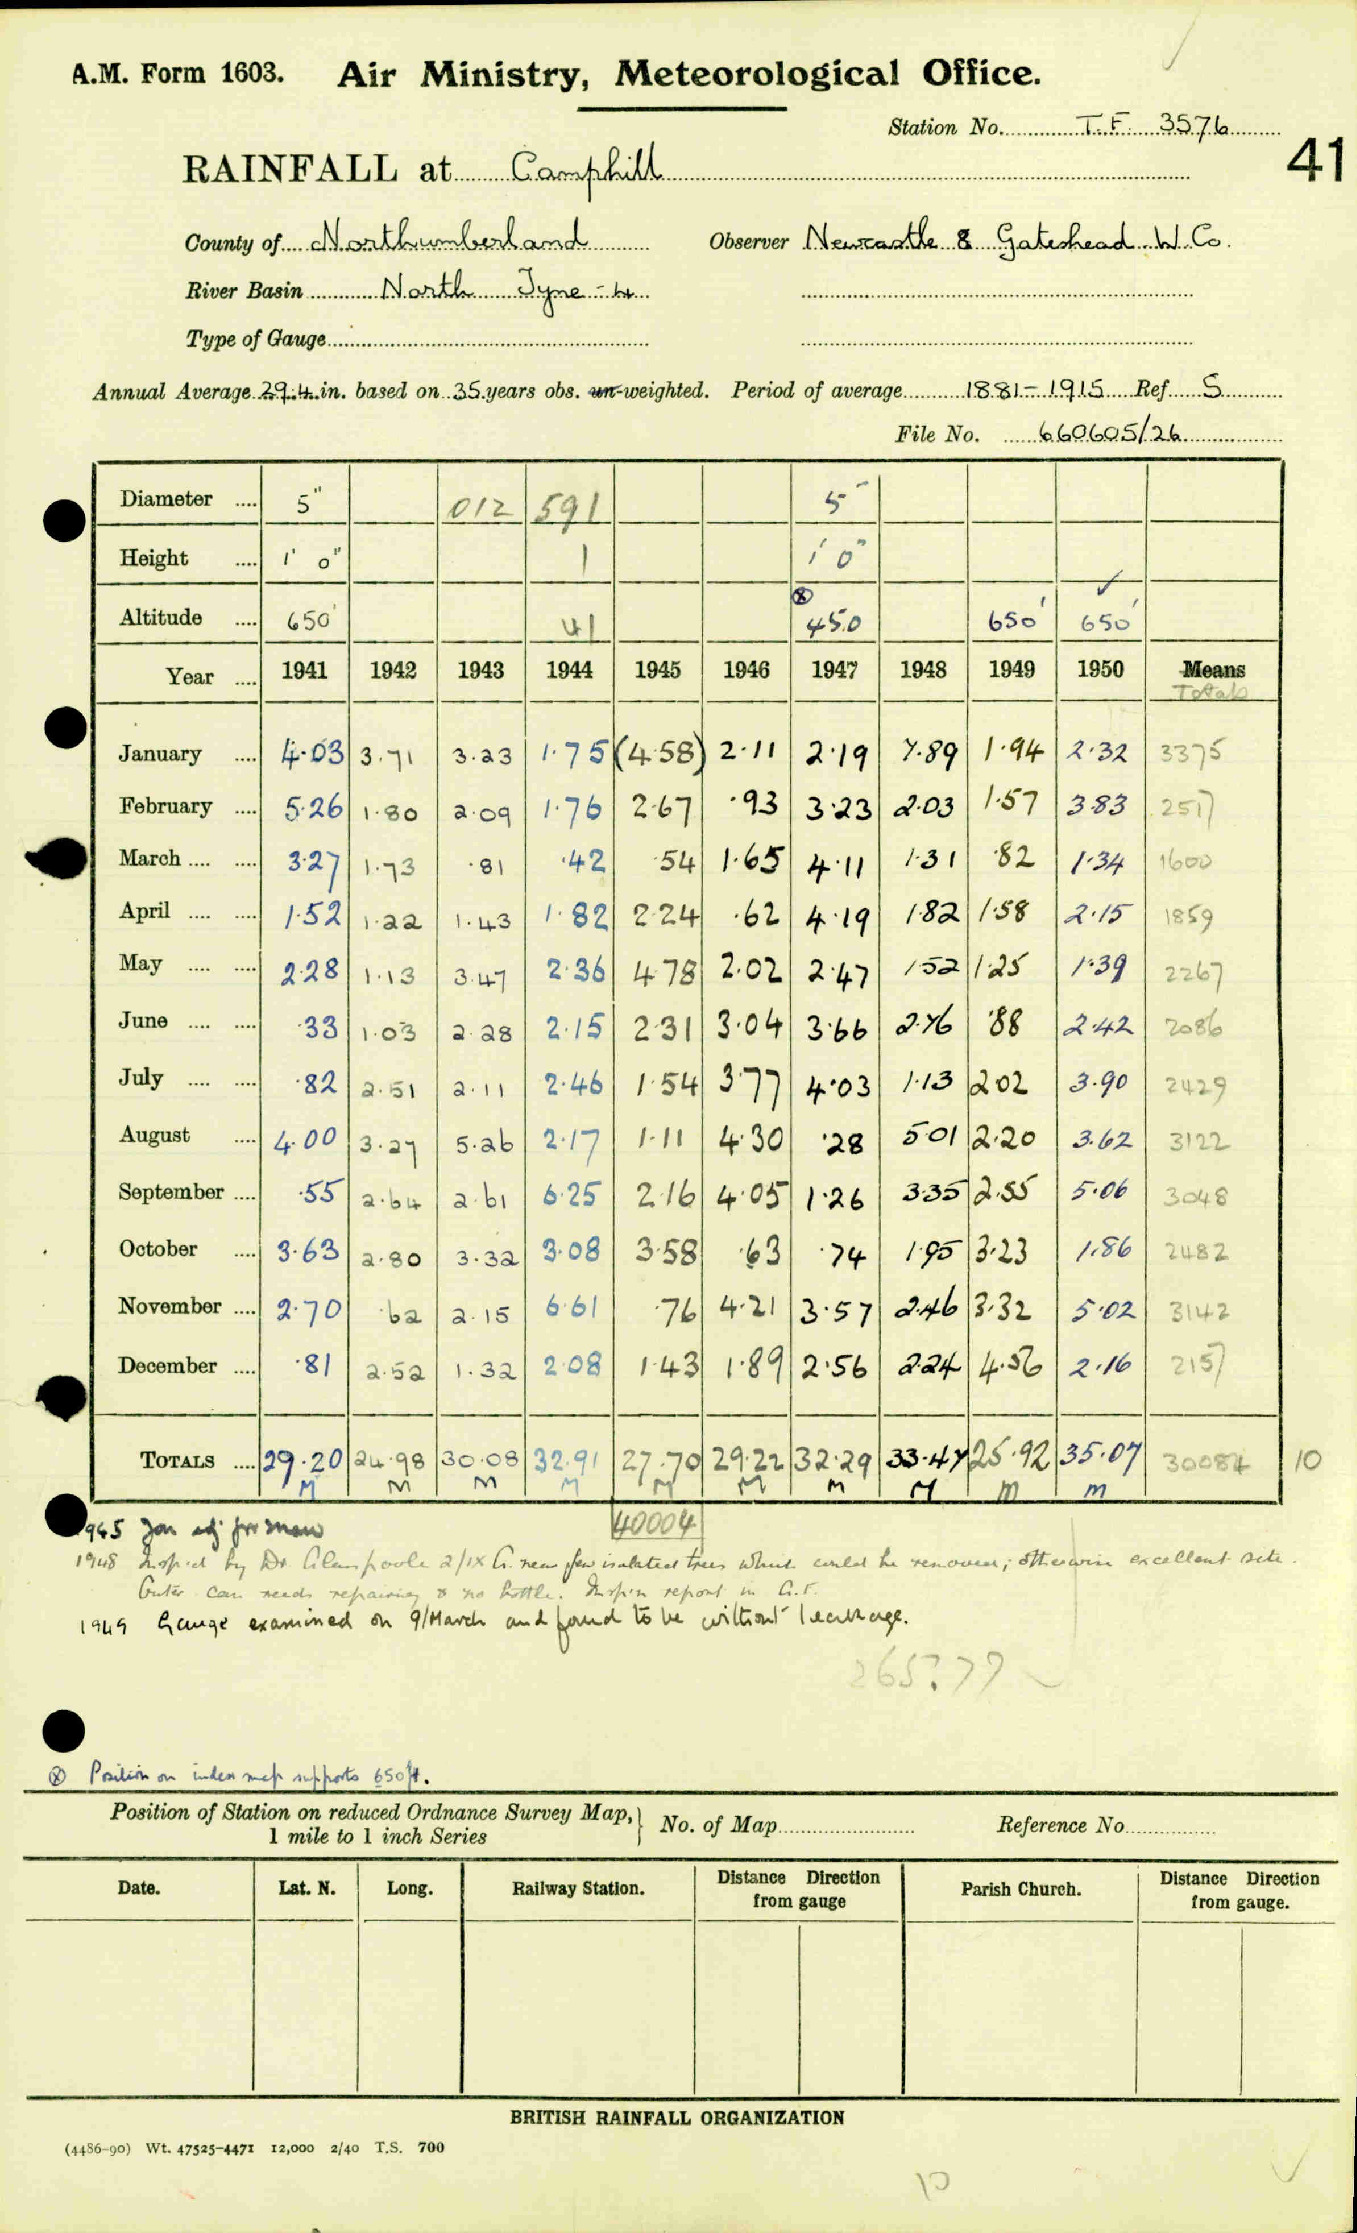 A.M. Form 1603. Air Ministry, Meteorological Office.
Station No. T.F. 3576
41
RAINFALL at Camphill
County of Northumberland Observer Newcastle & Gateshead W. Co.
River Basin North Tyne - 4
Type of Gauge
Annual Average 29.4 in. based on 35 years obs. un-weighted. Period of average 1881-1915 Ref S
File No. 660605/26
Diameter .... 5" 012 591 5"
Height .... 1' 0" 1 1' 0"
Altitude .... 650' 41 ⊗ 450 650' ✓ 650'
Year .... 1941 1942 1943 1944 1945 1946 1947 1948 1949 1950 Means Totals
January .... 4.03 3.71 3.23 1.75 (4.58) 2.11 2.19 7.89 1.94 2.32 3375
February .... 5.26 1.80 2.09 1.76 2.67 .93 3.23 2.03 1.57 3.83 2517
March .... .... 3.27 1.73 .81 .42 .54 1.65 4.11 1.31 .82 1.34 1600
April .... .... 1.52 1.22 1.43 1.82 2.24 .62 4.19 1.82 1.58 2.15 1859
May .... .... 2.28 1.13 3.47 2.36 4.78 2.02 2.47 1.52 1.25 1.39 2267
June .... .... .33 1.03 2.28 2.15 2.31 3.04 3.66 2.76 .88 2.42 2086
July .... .... .82 2.51 2.11 2.46 1.54 3.77 4.03 1.13 2.02 3.90 2429
August .... 4.00 3.27 5.26 2.17 1.11 4.30 .28 5.01 2.20 3.62 3122
September .... .55 2.64 2.61 6.25 2.16 4.05 1.26 3.35 2.55 5.06 3048
October .... 3.63 2.80 3.32 3.08 3.58 .63 .74 1.95 3.23 1.86 2482
November .... 2.70 .62 2.15 6.61 .76 4.21 3.57 2.46 3.32 5.02 3142
December .... .81 2.52 1.32 2.08 1.43 1.89 2.56 2.24 4.56 2.16 2157
TOTALS .... 29.20 24.98 30.08 32.91 27.70 29.22 32.29 33.47 25.92 35.07 30084 10
M M M M M M M M M M
1945 Jan adj for snow 40004
1948 Insp'd by Dr. Glasspoole 2/IX G. near few isolated trees which could be removed; otherwise excellent site.
Outer can needs repairing & no bottle. Insp'n report in C.F.
1949 Gauge examined on 9/March and found to be without leakage.
265.77 ✓
⊗ Position on index map supports 650 ft.
Position of Station on reduced Ordnance Survey Map, } No. of Map Reference No
1 mile to 1 inch Series
Date. Lat. N. Long. Railway Station. Distance Direction from gauge Parish Church. Distance Direction from gauge.
BRITISH RAINFALL ORGANIZATION
(4486-90) Wt. 47525-4471 12,000 2/40 T.S. 700
10